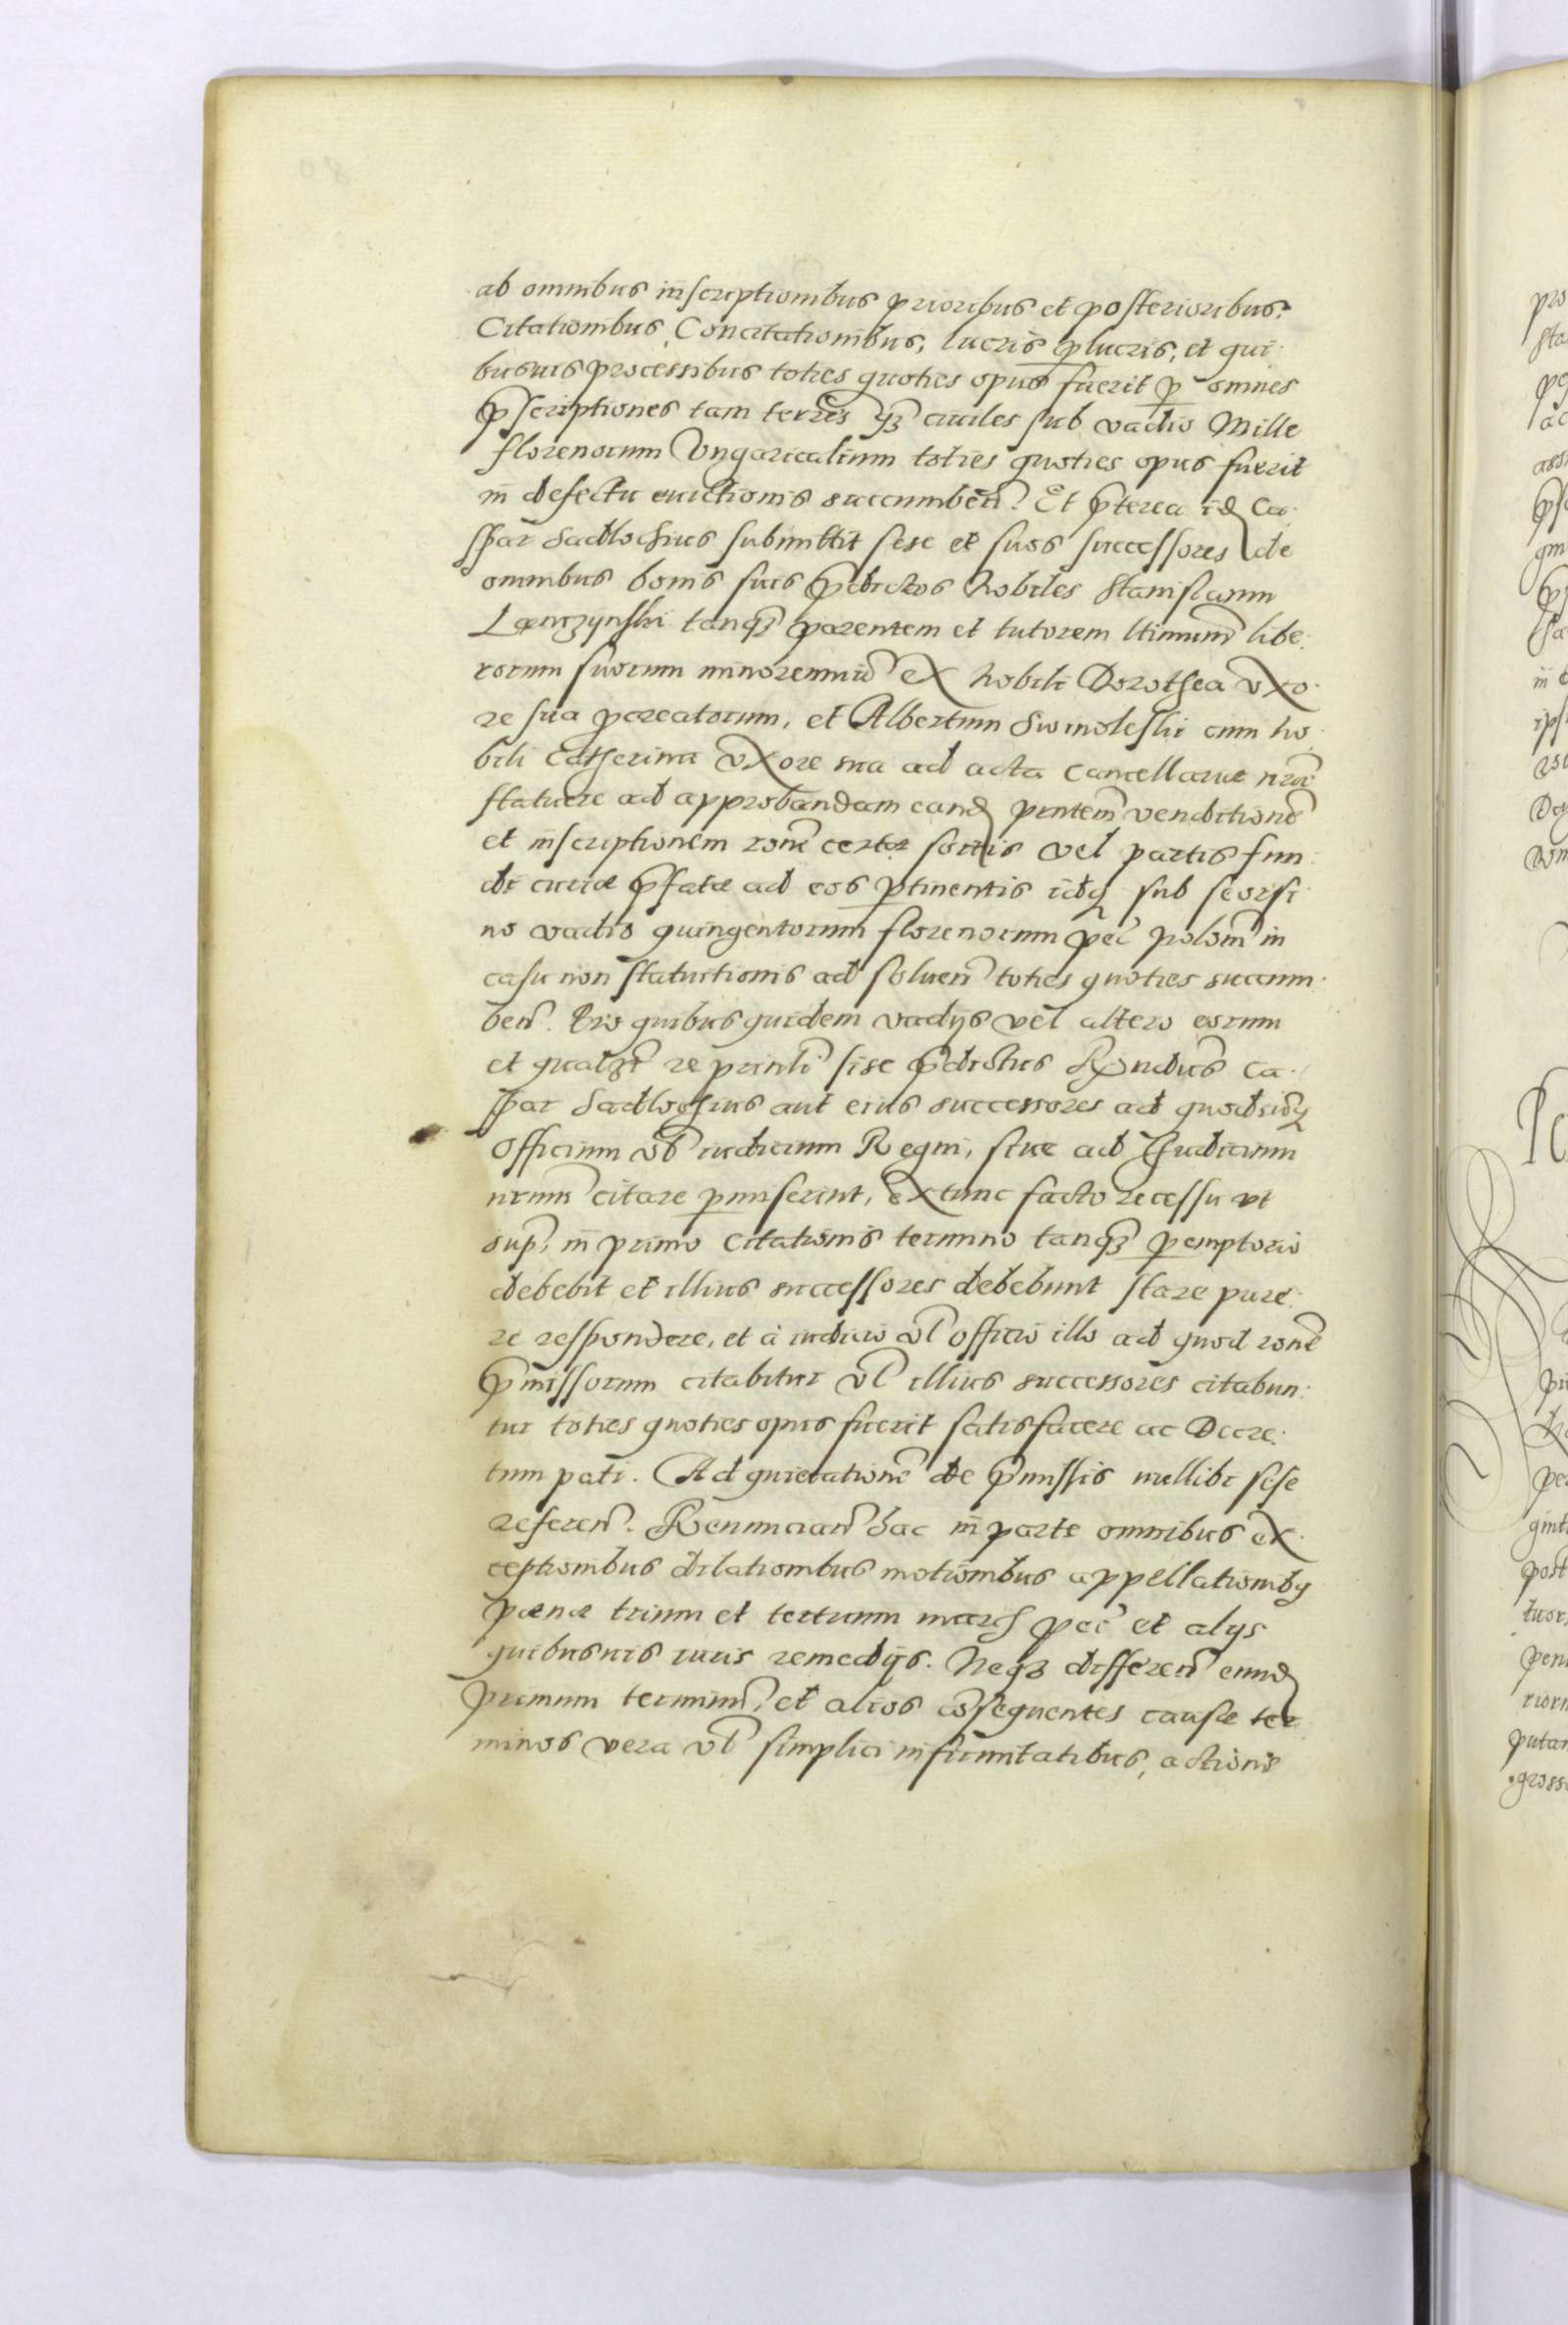 ab omnibus inscriptionibus prioribus et posterioribus,
Citationibus, Concitationibus, lucris plucris, et qui-
busuis processibus toties quoties opus fuerit p omnes
pscriptiones tam terrēs q̄ȝ ciuiles sub vadio Mille
florenorum Vngaricalium toties quoties opus fuerit
in defectu euictionis succumbeñ. Et p̄terea id Ca-
spar Sadlochius submittit sese et suos successores de
omnibus bonis suis p̄dictos Nobiles Stanislaum
Lęnczynski tanq̄ȝ parentem et tutorem ltimum̃ libe-
rorum suorum minorenniũ ex Nobili Dorothea vxo-
re sua pcreatorum, et Albertum Swinoleski cum No-
bili Catherina vxore sua ad acta Cancellariæ nrae
statuere ad approbandam eand pntem̃ venditionẽ
et inscriptionem ronẽ certæ sortis vel partis fun-
di curiæ p̄fatæ ad eos ptinentis idq sub seorsi-
no vadio quingentorum florenorum pec̃ polon̄ in
casu non statuitionis ad soluen̄ toties quoties succum-
ben̄. Pro quibus quidem vadijs vel altero eorum
et qualȝt re prinli sise p̄dictus Rndus Ca-
spar Sadlochius aut eius successores ad quodcũq
Officium vl̃ iudicium Regni, siue ad Iudicium
nrum̃ citare pmiserint, extunc facto recessu vt
sup̃, in primo citationis termino tanq̄ȝ pemptorio
debebit et illius successores debebunt stare pare-
re respondere, et à iudicio vl̃ officio illo ad quod ronẽ
p̄missorum citabitur vl̃ illius successores citabun-
tur toties quoties opus fuerit satisfacere ac Decre-
tum pati. Ad quietationẽ de p̄missis nullibi sese
referen̄. Renuncian̄ hac in parte omnibus ex-
ceptionibus dilationibus motionibus appellationibq
pœnæ trium et tertium march pec̃ et alijs
quibusuis iuris remedijs. Neqȝ differen̄ eund
primum terminũ, et alios cõsequentes causæ ter-
minos vera vl̃ simplici infirmitatibus, actionis